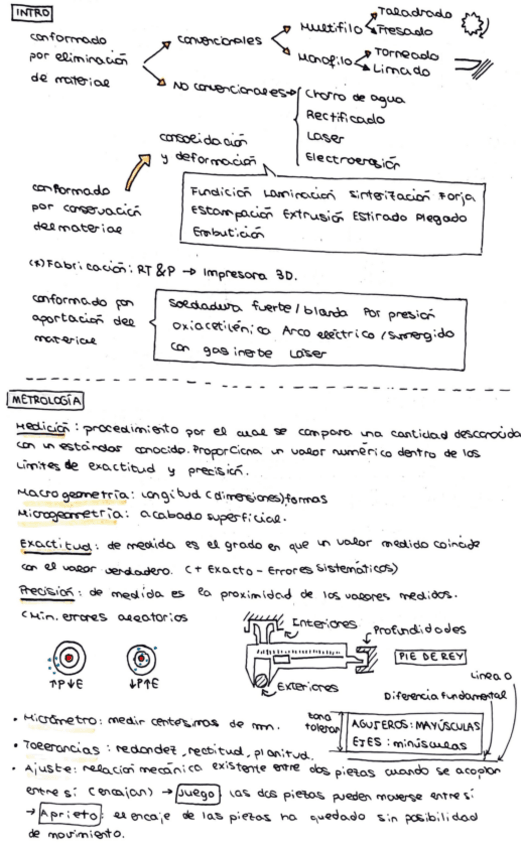 INTRO
conformado por eliminación de material
convencionales
Multifilo
Taladrado
Fresado
Monofilo
Torneado
Limado
No convencionales
Chorro de agua
Rectificado
Laser
Electroerosión
conformado por conservación del material
consolidación y deformación
Fundición Laminación Sinterización Forja
Estampación Extrusión Estirado Plegado
Embutición
(*) Fabricación: RT&P → Impresora 3D.
conformado por aportación del material
Soldadura fuerte/blanda Por presión
oxiacetilénica Arco eléctrico/Sumergido
con gas inerte Laser
METROLOGÍA
Medición: procedimiento por el cual se compara una cantidad desconocida
con un estándar conocido. Proporciona un valor numérico dentro de los
límites de exactitud y precisión.
Macrogeometría: longitud (dimensiones) formas
Microgeometría: acabado superficial.
Exactitud: de medida es el grado en que un valor medido coincide
con el valor verdadero. (+ Exacto - Errores sistemáticos)
Precisión: de medida es la proximidad de los valores medidos.
(Min. errores aleatorios
↑P↓E
↓P↑E
Interiores
Profundidades
Exteriores
PIE DE REY
Linea 0
Diferencia fundamental
zona toleran
AGUJEROS: MAYÚSCULAS
EJES: minúsculas
• Micrómetro: medir centésimas de mm.
• Tolerancias: redondez, rectitud, planitud.
• Ajuste: relación mecánica existente entre dos piezas cuando se acoplan
entre sí (encajan) → Juego: las dos piezas pueden moverse entre sí
→ Aprieto: el encaje de las piezas ha quedado sin posibilidad
de movimiento.